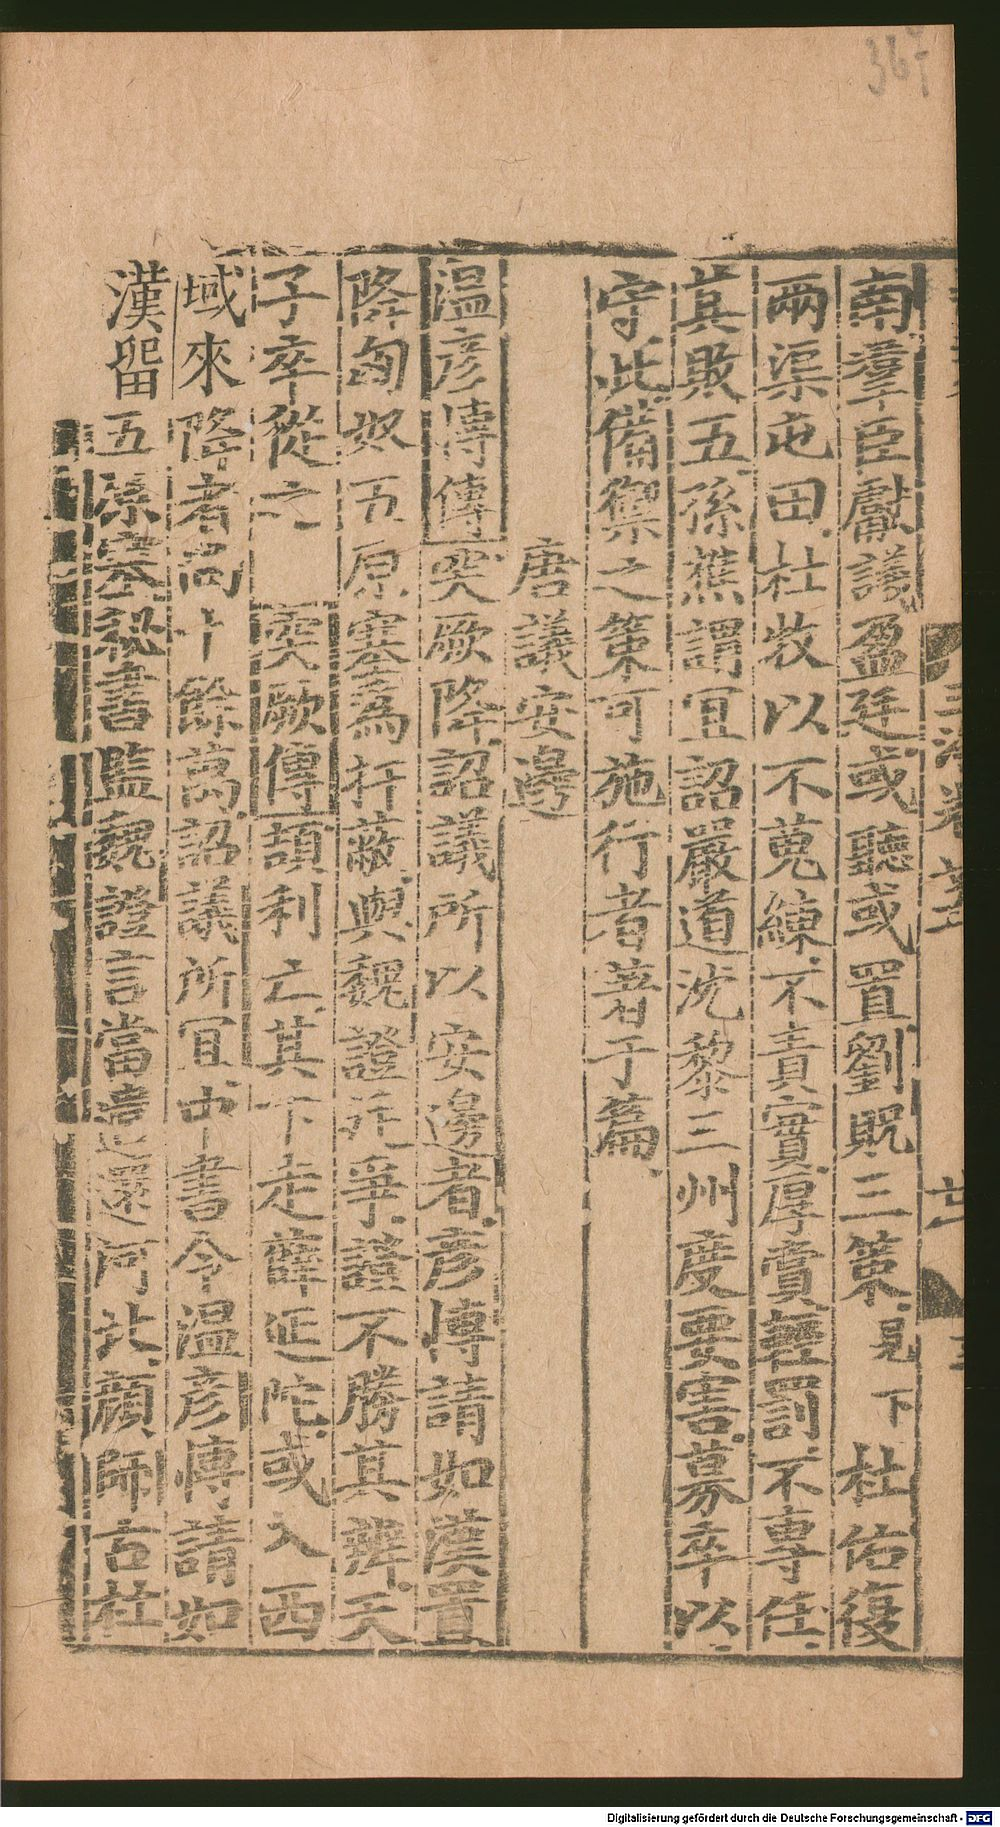 南羣臣獻議盈廷或聽或置劉貺三策見下杜佑復
兩渠屯田杜牧以不蒐練不責實厚賞輕罰不專任
其敗五孫樵謂宜詔嚴道沈黎三州度要害募卒以
守此備禦之策可施行者著于篇
唐議安邊
温彦愽傳突厥降詔議所以安邊者彦愽請如漢置
降匈奴五原塞爲扞蔽與魏證詆爭證不勝其辯天
子卒從之突厥傳頡利亡其下走薛延陀或入西
域來降者尚十餘萬詔議所宜中書令温彦愽請如
漢留五原塞秘書監魏證言當遣還河北顔師古杜
Digitalisierung gefördert durch die Deutsche Forschungsgemeinschaft - DFG